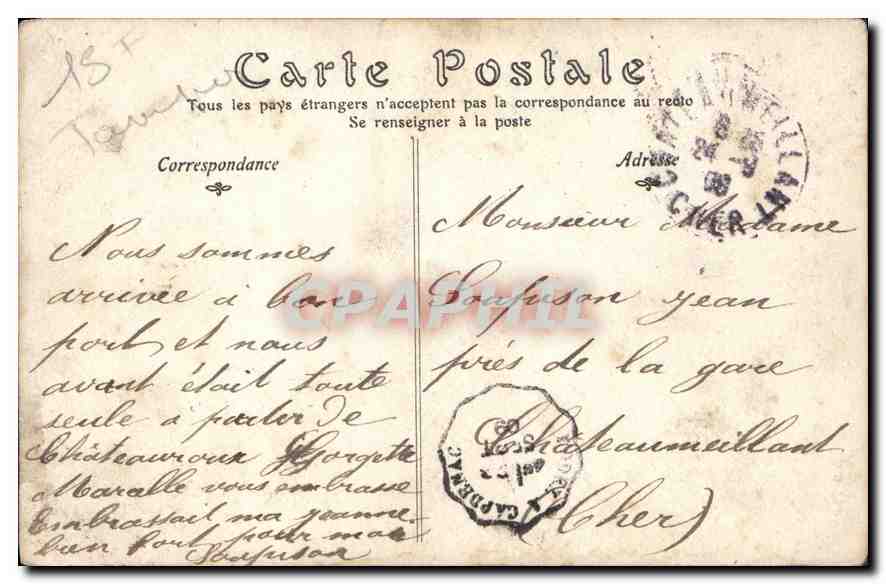 15 F
Carte Postale
Tous les pays étrangers n'acceptent pas la correspondance au recto
Se renseigner à la poste
Correspondance
Nous sommes
arrivée à bon
port et nous
avant était toute
seule a partir de
Châteauroux Gorgette
Maralle vous embrasse
Embrassait ma jeanne
bien fort pour moi
Soupison
Adresse
Monsieur Madame
Soupison jean
près de la gare
Châteaumeillant
(Cher)
CHATEAUMEILLANT
CHER
CAPDENAC
CPAPHIL